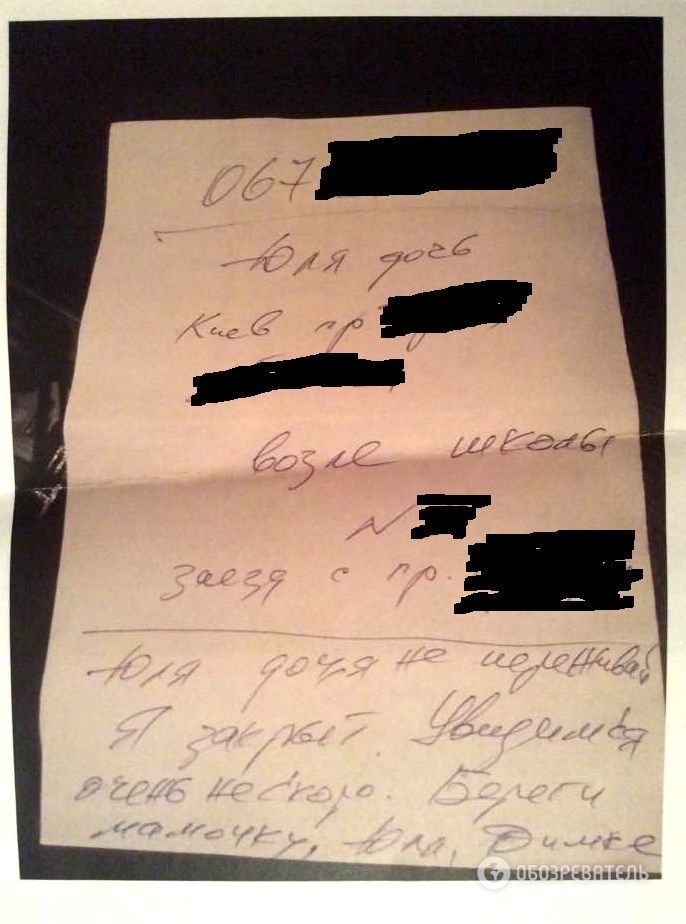 067
Юля дочь
Киев пр
возле школы
N
заезд с пр.
Юля дочя не переживай
Я закрыт. Увидимся
очень нескоро. Береги
мамочку, Юля, Димке
ОБОЗРЕВАТЕЛЬ